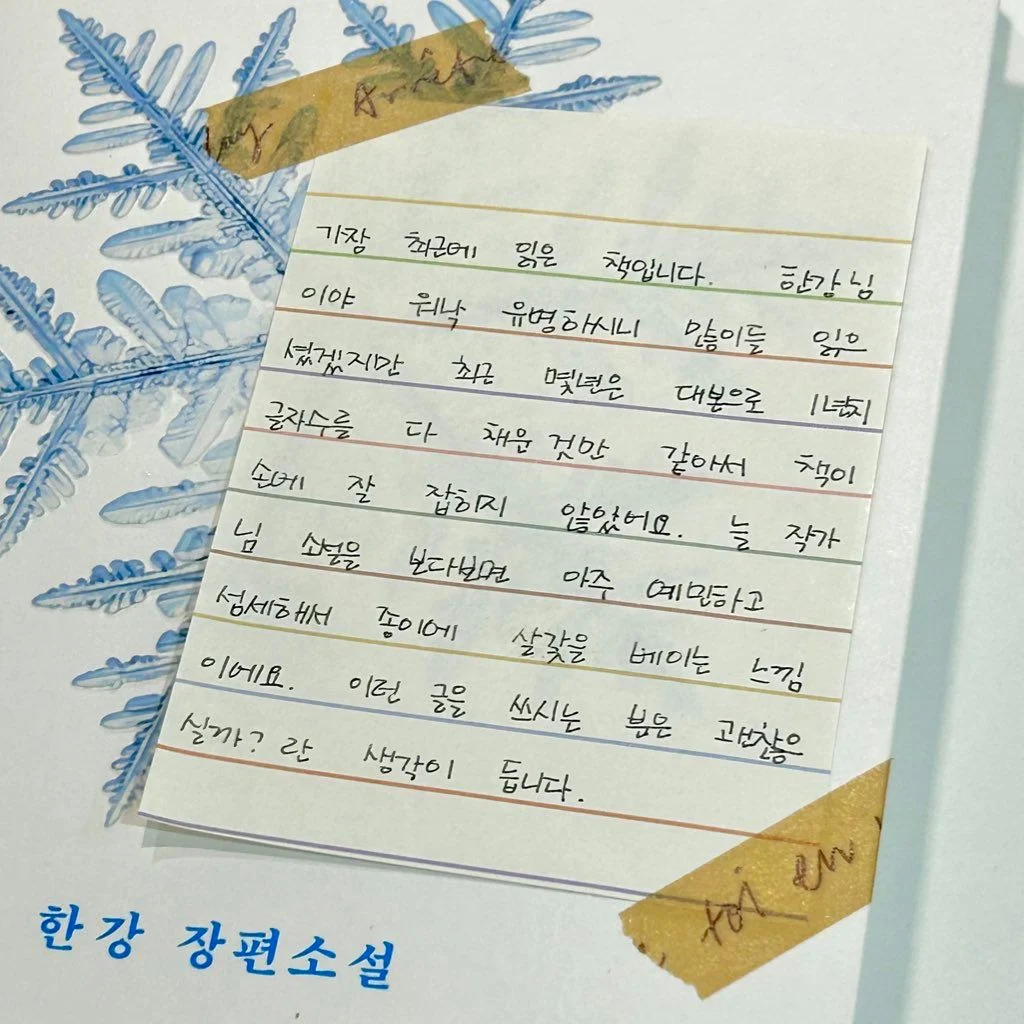 가장 최근에 읽은 책입니다. 한강님
이야 워낙 유명하시니 많이들 읽으
셨겠지만 최근 몇년은 대본으로 1년치
글자수를 다 채운 것만 같아서 책이
손에 잘 잡히지 않았어요. 늘 작가
님 소설을 보다보면 아주 예민하고
섬세해서 종이에 살갗을 베이는 느낌
이에요. 이런 글을 쓰시는 분은 괜찮으
실까? 란 생각이 듭니다.
toi en
한강 장편소설